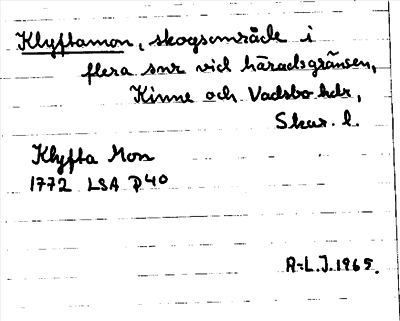 Klyftamon, skogsområde i
flera snr vid häradsgränsen,
Kinne och Vadsbo hdr,
Skar. l.
Klyfta Mon
1772 LSA P40
A-L.J. 1965.